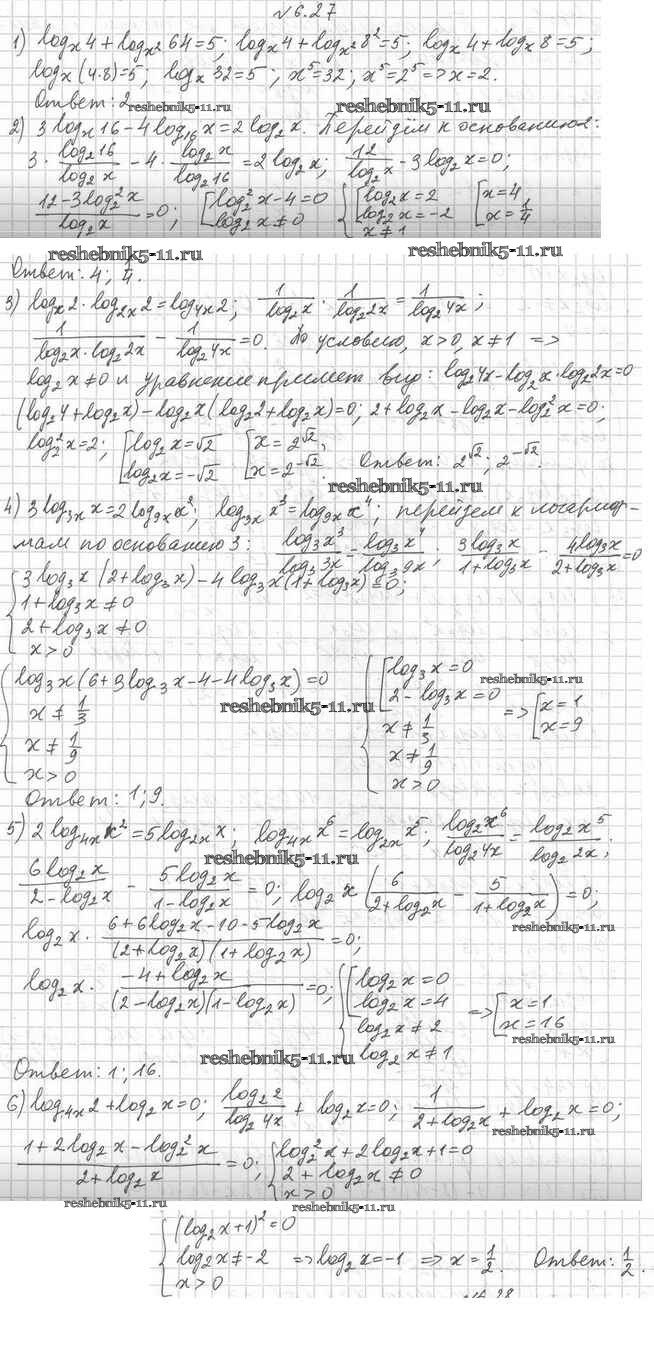 №6.27
1) log_x 4 + log_x² 64 = 5; log_x 4 + log_x² 8² = 5; log_x 4 + log_x 8 = 5;
log_x (4·8) = 5; log_x 32 = 5; x⁵ = 32; x⁵ = 2⁵ => x = 2.
Ответ: 2
reshebnik5-11.ru reshebnik5-11.ru
2) 3 log_x 16 - 4 log_16 x = 2 log_2 x. Перейдём к основанию 2:
3 · log_2 16 / log_2 x - 4 · log_2 x / log_2 16 = 2 log_2 x; 12 / log_2 x - 3 log_2 x = 0;
(12 - 3 log_2² x) / log_2 x = 0; [ log_2² x - 4 = 0 log_2 x ≠ 0 { [ log_2 x = 2 log_2 x = -2 x ≠ 1 [ x = 4 x = 1/4
reshebnik5-11.ru reshebnik5-11.ru
Ответ: 4; 1/4.
3) log_x 2 · log_2x 2 = log_4x 2; 1 / log_2 x · 1 / log_2 2x = 1 / log_2 4x;
1 / (log_2 x · log_2 2x) - 1 / log_2 4x = 0. По условию, x > 0, x ≠ 1 =>
log_2 x ≠ 0 и уравнение примет вид: log_2 4x - log_2 x · log_2 2x = 0
(log_2 4 + log_2 x) - log_2 x (log_2 2 + log_2 x) = 0; 2 + log_2 x - log_2 x - log_2² x = 0;
log_2² x = 2; [ log_2 x = √2 log_2 x = -√2 [ x = 2^√2, x = 2^-√2. Ответ: 2^√2; 2^-√2.
reshebnik5-11.ru
4) 3 log_3x x = 2 log_9x x²; log_3x x³ = log_9x x⁴; перейдем к логариф-
мам по основанию 3: log_3 x³ / log_3 3x = log_3 x⁴ / log_3 9x; 3 log_3 x / (1 + log_3 x) - 4 log_3 x / (2 + log_3 x) = 0
{ 3 log_3 x (2 + log_3 x) - 4 log_3 x (1 + log_3 x) = 0;
1 + log_3 x ≠ 0
2 + log_3 x ≠ 0
x > 0
{ log_3 x (6 + 3 log_3 x - 4 - 4 log_3 x) = 0 { [ log_3 x = 0 reshebnik5-11.ru
x ≠ 1/3 reshebnik5-11.ru 2 - log_3 x = 0 => [ x = 1
x ≠ 1/9 x ≠ 1/3 x = 9
x > 0 x ≠ 1/9
x > 0
Ответ: 1; 9.
5) 2 log_4x x² = 5 log_2x x; log_4x x⁶ = log_2x x⁵; log_2 x⁶ / log_2 4x = log_2 x⁵ / log_2 2x;
reshebnik5-11.ru
6 log_2 x / (2 - log_2 x) - 5 log_2 x / (1 - log_2 x) = 0; log_2 x (6 / (2 + log_2 x) - 5 / (1 + log_2 x)) = 0;
reshebnik5-11.ru
log_2 x · (6 + 6 log_2 x - 10 - 5 log_2 x) / ((2 + log_2 x)(1 + log_2 x)) = 0;
log_2 x · (-4 + log_2 x) / ((2 - log_2 x)(1 - log_2 x)) = 0; { [ log_2 x = 0 log_2 x = 4 log_2 x ≠ 2 log_2 x ≠ 1 => [ x = 1 x = 16
reshebnik5-11.ru
reshebnik5-11.ru
Ответ: 1; 16.
6) log_4x 2 + log_2 x = 0; log_2 2 / log_2 4x + log_2 x = 0; 1 / (2 + log_2 x) + log_2 x = 0;
reshebnik5-11.ru
(1 + 2 log_2 x - log_2² x) / (2 + log_2 x) = 0; { log_2² x + 2 log_2 x + 1 = 0 2 + log_2 x ≠ 0 x > 0
reshebnik5-11.ru reshebnik5-11.ru
{ (log_2 x + 1)² = 0
log_2 x ≠ -2 => log_2 x = -1 => x = 1/2. Ответ: 1/2.
x > 0